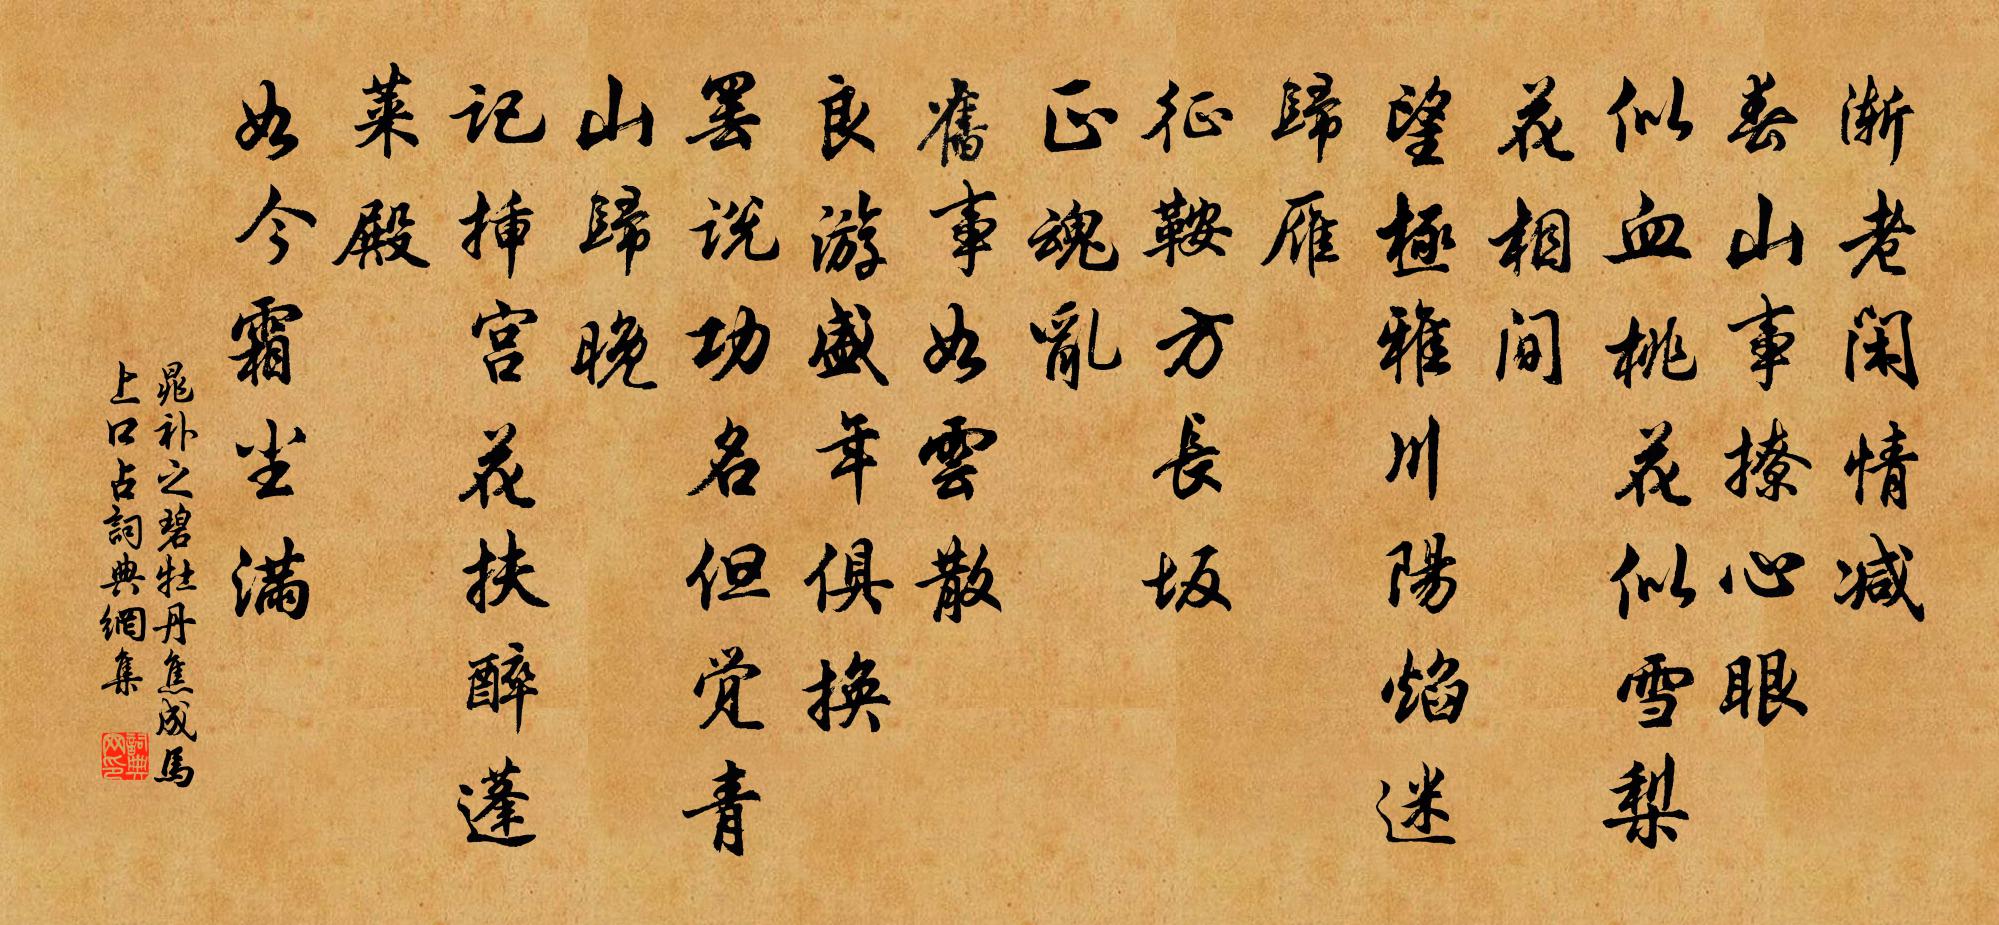 漸老閑情减
春山事撩心眼
似血桃花似雪梨
花相间
望極雅川陽焰迷
歸雁
征鞍方長坂
正魂亂
舊事如雲散
良游盛年俱换
罢说功名但觉青
山歸晚
记插宫花扶醉蓬
莱殿
如今霜尘满
晁补之碧牡丹焦成馬
上口占詞典網集
詞典网印